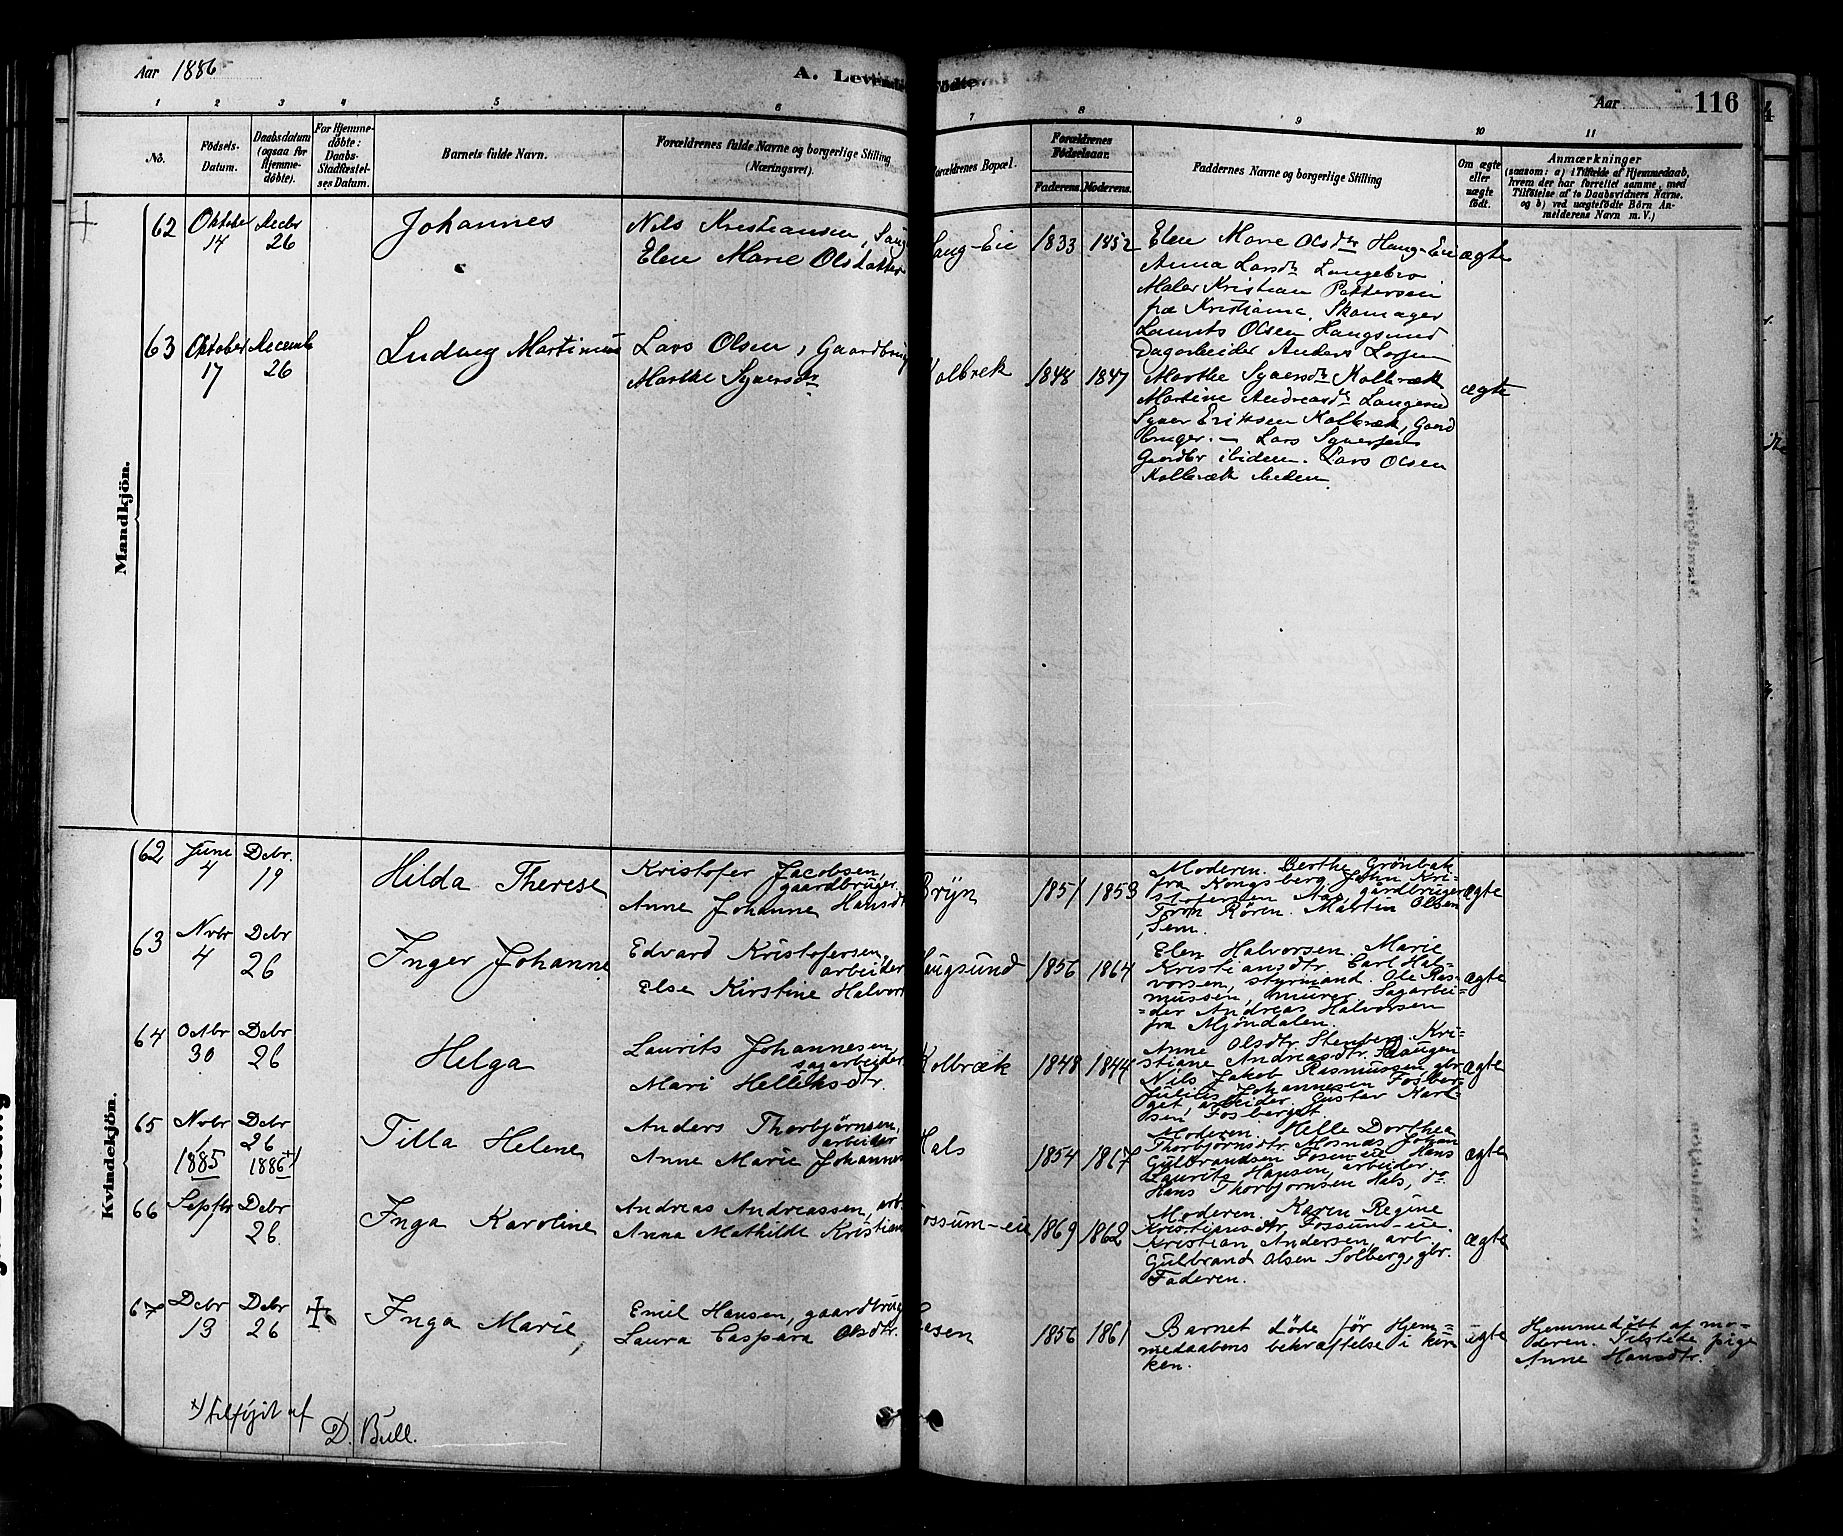 Aar 1886
A. Levende
Fødte
Aar
116
1 2 3 4 5 6 7 8 9 10 11
No.
Fødsels-Datum.
Daabsdatum (ogsaa for Hjemme-døbte).
For Hjemme-døbte: Daabs-Stadfæstelses Datum.
Barnets fulde Navn.
Forældrenes fulde Navne og borgerlige Stilling (Næringsvei).
Forældrenes Bopæl.
Forældrenes Fødselsaar.
Faderens. Moderens.
Faddernes Navne og borgerlige Stilling
Om ægte eller uægte født.
Anmærkninger
(saasom: a) i Tilfælde af Hjemmedaab, hvem der har forrettet samme, med Tilføielse af to Daabsvidners Navne, og b) ved uægtefødte Børn Anmelderens Navn m. V.)
Mandkjøn.
62 Oktober 14 Decbr 26
Johannes
Nils Kristiansen,
Elen Marie Olsdatter
Haug-Eie 1833 1852
Elen Marie Olsdtr Haug-Eie
Anna Larsdtr Langebro
Maler Kristian Pettersen
fra Kristiania, Skomager
Laurits Olsen Haugsund
Dagarbeider Anders Larsen
ægte
63 Oktober 17 Decemb 26
Ludvig Martinius
Lars Olsen, Gaardbrug
Marthe Syversdtr
Kolbrek 1848 1847
Marthe Syversdtr Kolbræk
Martine Andreasdtr Langerud
Syver Eriksen Kolbræk, Gaard
bruger. – Lars Syversen
Gaardbr ibidem. Lars Olsen
Kolbræk
ægte
Kvindekjøn.
62 Juni 4 Debr. 19
Hilda Therese
Kristofer Jacobsen, gaardbruger.
Anne Johanne Hansdt
Bryn 1851 1853
Moderen. Berthe Grönbæk
fra Kongsberg John Kri-
stofersen gårdbruger
Tron Røren. Martin Olsen
Sem.
ægte
63 Novbr 4 Debr 26
Inger Johanne
Edvard Kristofersen, arbeider
Else Kirstine Halvor
Haugsund 1856 1864
Elen Halvorsen. Marie
Kristiansdtr. Carl Hal-
vorsen, styrmand. Ole Ras-
mussen, murer. Sagarbei-
der Andreas Halvorsen
fra Mjöndalen.
ægte
64 Octbr 30 Debr 26
Helga
Laurits Johannesen, sagarbeider
Mari Helleksdtr.
Kolbræk 1848 1844
Anne Olsdtr. Stenberg. Kri-
stiane Andreasdtr.
Nils Jakob Rasmussen gbr
Julius Johannesen Fosber-
get, arbeider. Gustav Karl-
sen, Fosberget.
ægte
65 Novbr 1 1885 Debr 26 1886 x)
Tilla Helene
Anders Thorbjørnsen, arbeider
Anne Marie Johannes
Hals 1854 1867
Moderen. Helle Dorthea
Thorbjørnsdtr. Mosnæs Johan
Gulbrandsen Fosen-eie Hans
Laurits Hansen, arbeider.
Hans Thorbjørnsen Hals, do
ægte
66 Septbr 1 Debr 26.
Inga Karoline
Andreas Andreassen, arb.
Anna Mathilde Kristian
Fossum-eie 1869 1862
Moderen. Karen Regine
Kristiansdtr. Fossund-eie.
Kristian Andersen, arb.
Gulbrand Olsen Solberg, gbr.
Faderen.
ægte
67 Debr 13 Debr 26
Inga Marie,
Emil Hansen, gaardbrug
Laura Caspara Olsdtr.
1856 1861
Barnet döde för Hjem-
medaabens bekræftelse i kir-
ken.
ægte
Hjemmedöbt af mo-
deren. Tilstede pige
Anne Hansdtr.
x) tilføjet af
D. Bull.